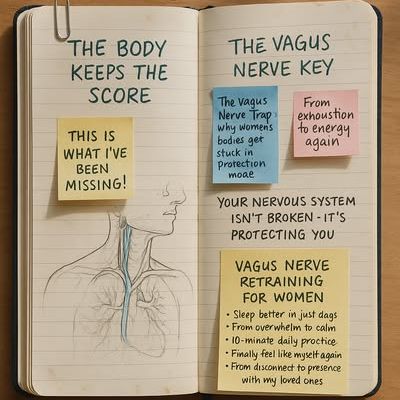 THE BODY
KEEPS THE
SCORE
THIS IS
WHAT I'VE
BEEN
MISSING!
THE VAGUS
NERVE KEY
The Vagus
Nerve Trap:
why womens
bodies get
stuck in
protection
moae
From
exhoustion
to energy
again
YOUR NERVOUS SYSTEM
ISN'T BROKEN-IT'S
PROTECTING YOU
VAGUS NERVE
RETRAINING
FOR WOMEN
• Sleep better in just dags
• From overwhelm to calm
• 10-minate daily proctice
• Finally feel like myself again
• From disconnect to presence
with my loved ones